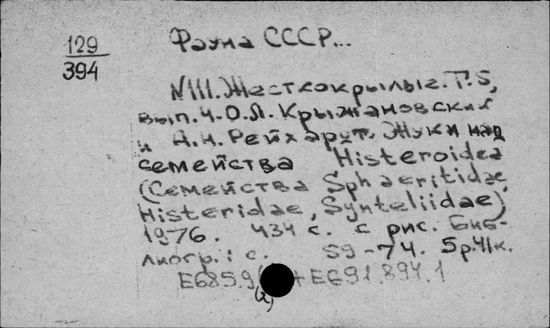 129
394
Фауна СССР...
N 111. Жесткокрылые. Т. 5,
вып. 4. О.Л. Крыжановский
и А.Н. Рейхардт. Жуки над
семейства Histeroidea
(Семейства Sphaeritidae,
Histeridae, Synteliidae)
1976. 434 с. с рис. Биб-
лиогр.: с. 59-74. 5р41к.
Е685.9(2)+Е691.894.1